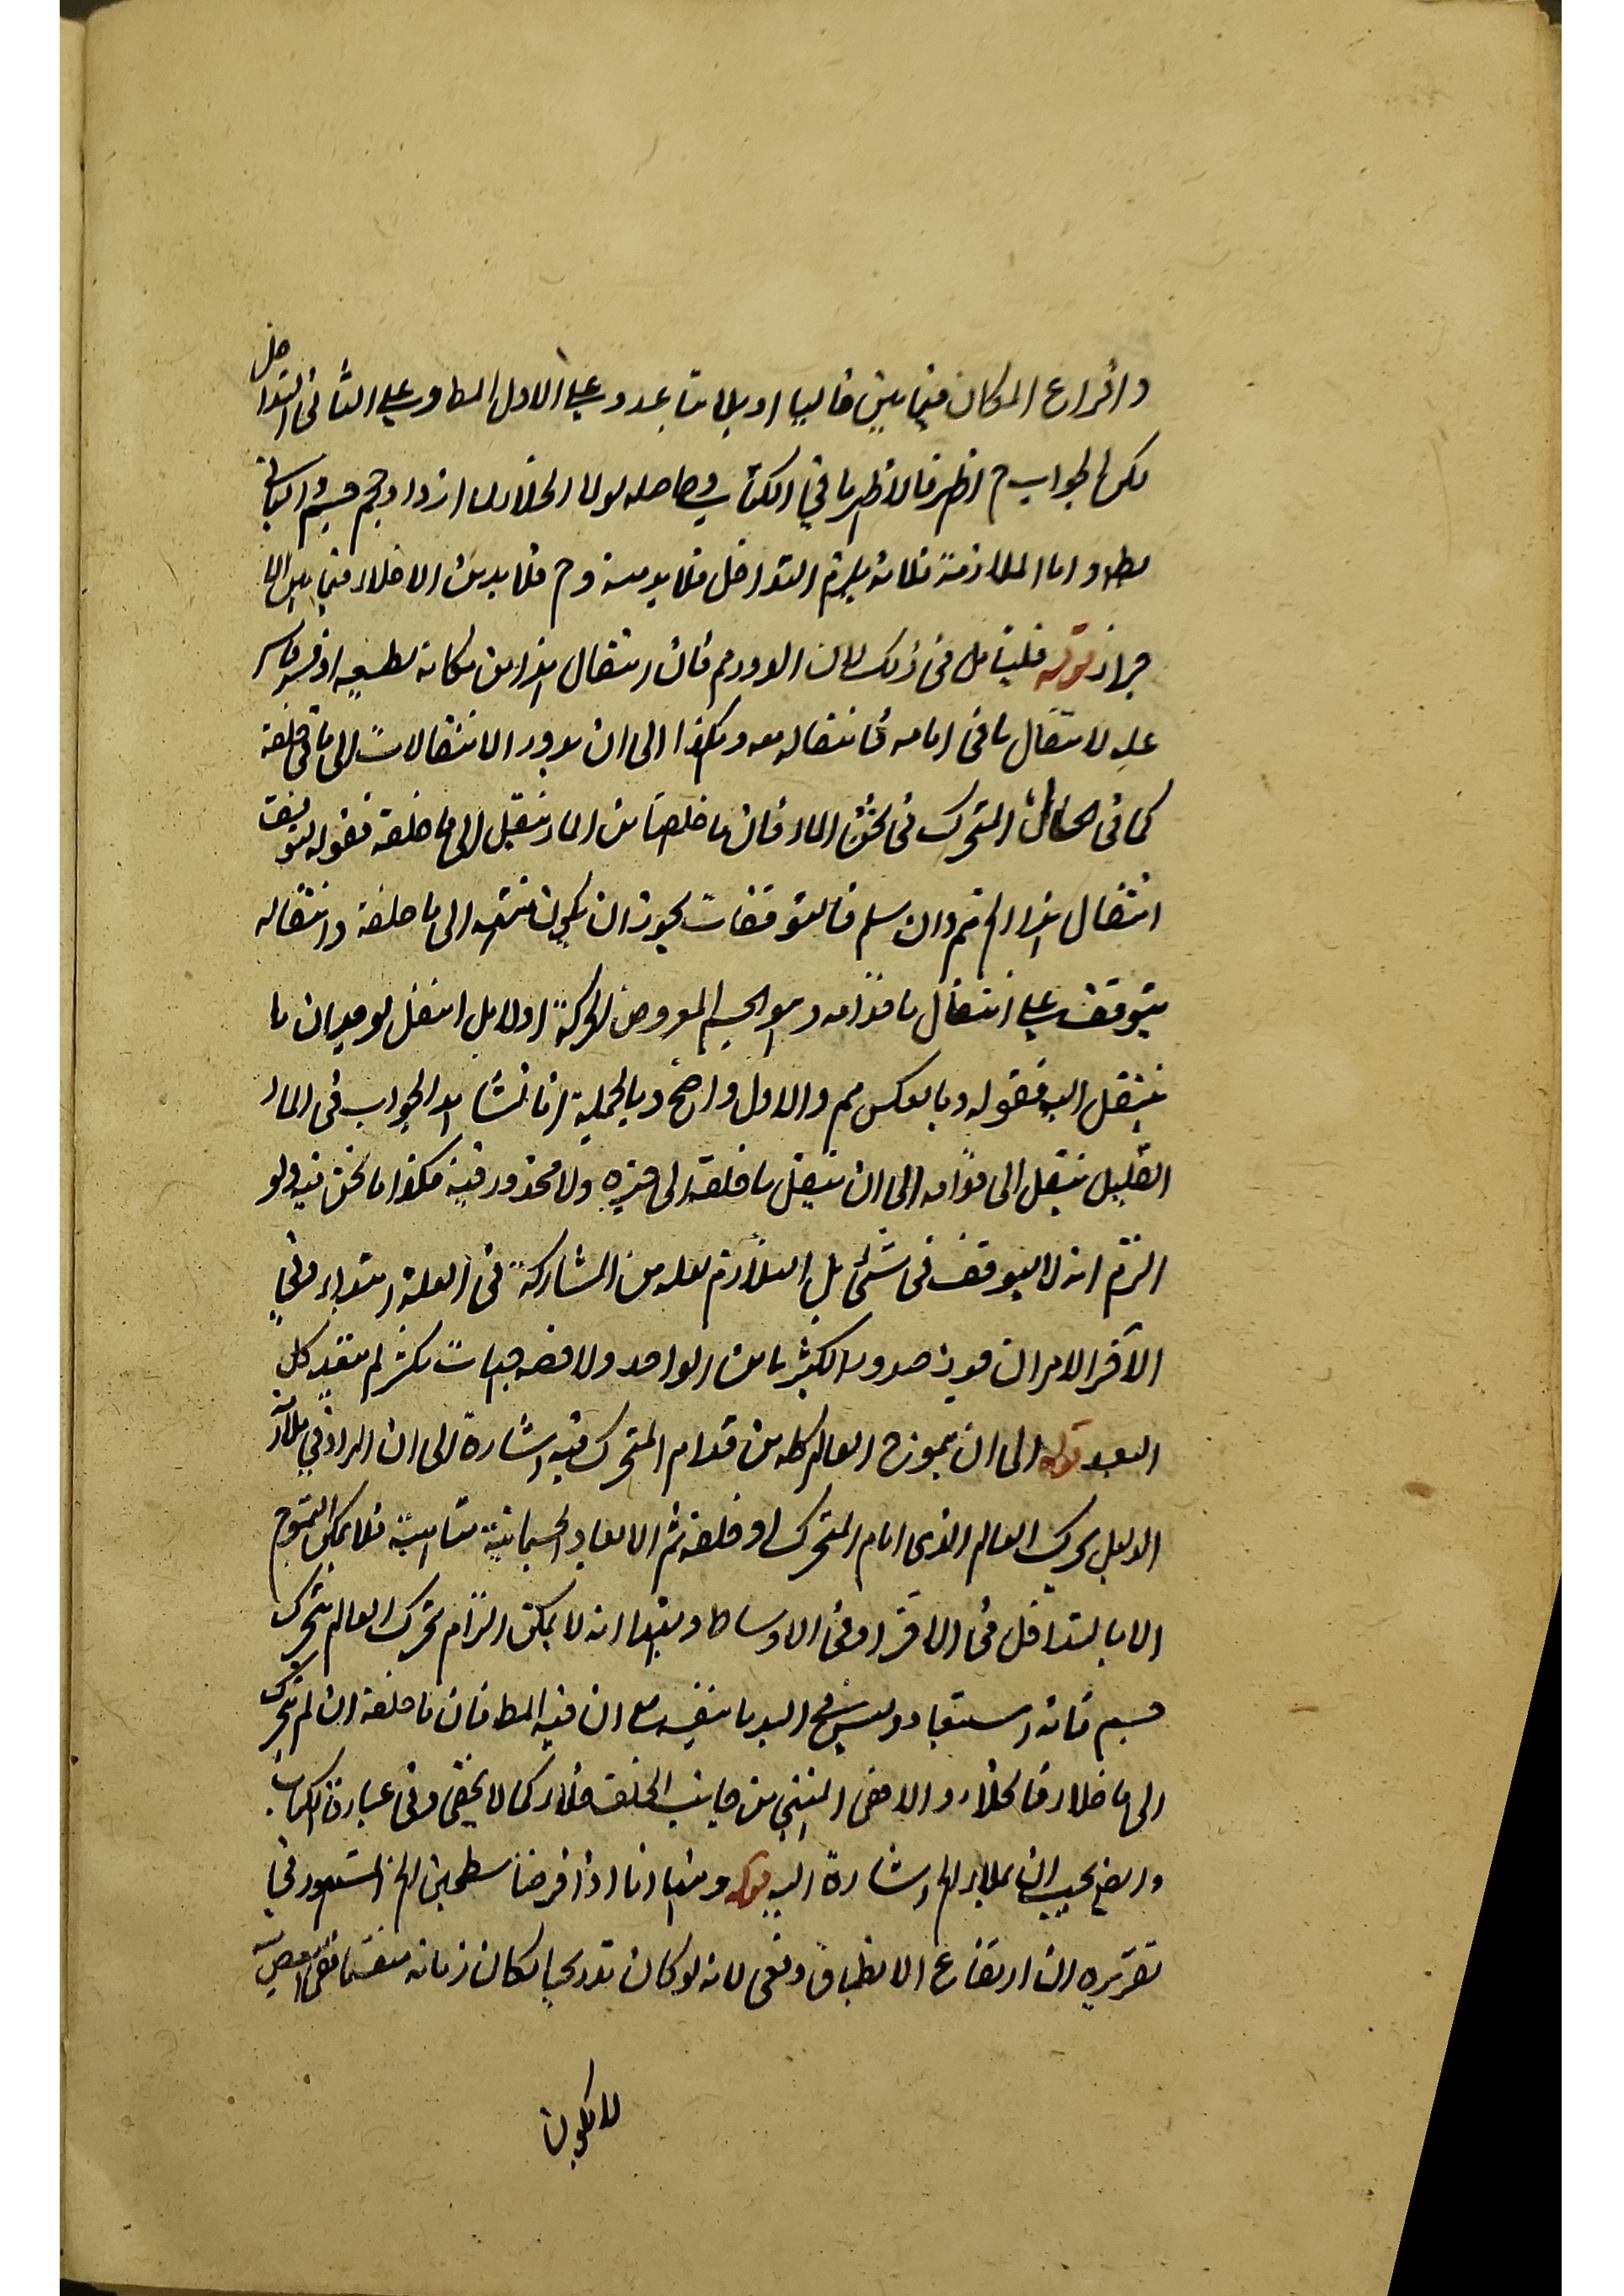 وافراغ المكان فيما بين خاليا او بلا تباعد وعلى الاول المط وعلى الثاني التداخل
لكن الجواب ح اظهر فالاظهر ما في الكتاب وحاصله لولا الخلاء ازداد حجم جسم والتالي
بط واما الملازمة فلانه يلزم التداخل فلا بد منه وح فلا بد من الاخلاء فيما بين
قوله فليتامل في ذلك لان الدور مم فان انتقال الهواء من مكانه
عليه لانتقال ما في امامه فانتقاله معه وهكذا الى ان يدور الانتقالات الى ما في خلفه
كما في السمك المتحرك في الماء فان ما خلفها من الماء ينتقل الى ما خلفه فقوله يتوقف
انتقال الهواء الخ مم وان سلم فالتوقفات يجوز ان يكون منتهية الى ما خلفه وانتقاله
يتوقف على انتقال ما قدامه وهو الجسم المعروض للحركة اولا بل انتقل لوجدان ما
ينتقل اليه فقوله وبالعكس مم والاول واضح وبالجملة انا نشاهد الجواب في الماء
القليل ينتقل الى قدامه الى ان ينتقل ما خلفه الى حيزه ولا محذور فيه فكذا ما نحن فيه ولو
التزم انه لا يتوقف في شئ بل التلازم لعله من المشاركة في العلة ابتداء وفي
الآخر الامر ان جوز صدور الكثير ما من الواحد ولا فضه جهات بكثر لم يتعد كل
البعد قوله الى ان يتموج العالم كله من قدام المتحرك فيه اشارة الى ان المراد في
الدليل بحركة العالم الذي امام المتحرك او خلفه ثم الابعاد الجسمانية متناهية فلا يمكن التموج
الا بالتداخل في الآخر او في الاوساط وبهذا انه لا يمكن التزام تحرك العالم بتحرك
جسم فانه استبعاد وليس في اليد ما ينفيه مع ان فيه المط فان ما خلفه ان لم يتحرك
الى ما خلاء فالخلاء والا ففي المنتهى من جانب الخلف خلاء كما لا يخفى وفي عبارة الكتاب
واضح يجيب ان بملاء الخ اشارة اليه قوله ومنها انا اذا فرضنا سطحين الخ المشهور في
تقريره ان ارتفاع الانطباق دفعي لانه لو كان تدريجيا لكان زمانه منقسما ففي بعضه
لا يكون